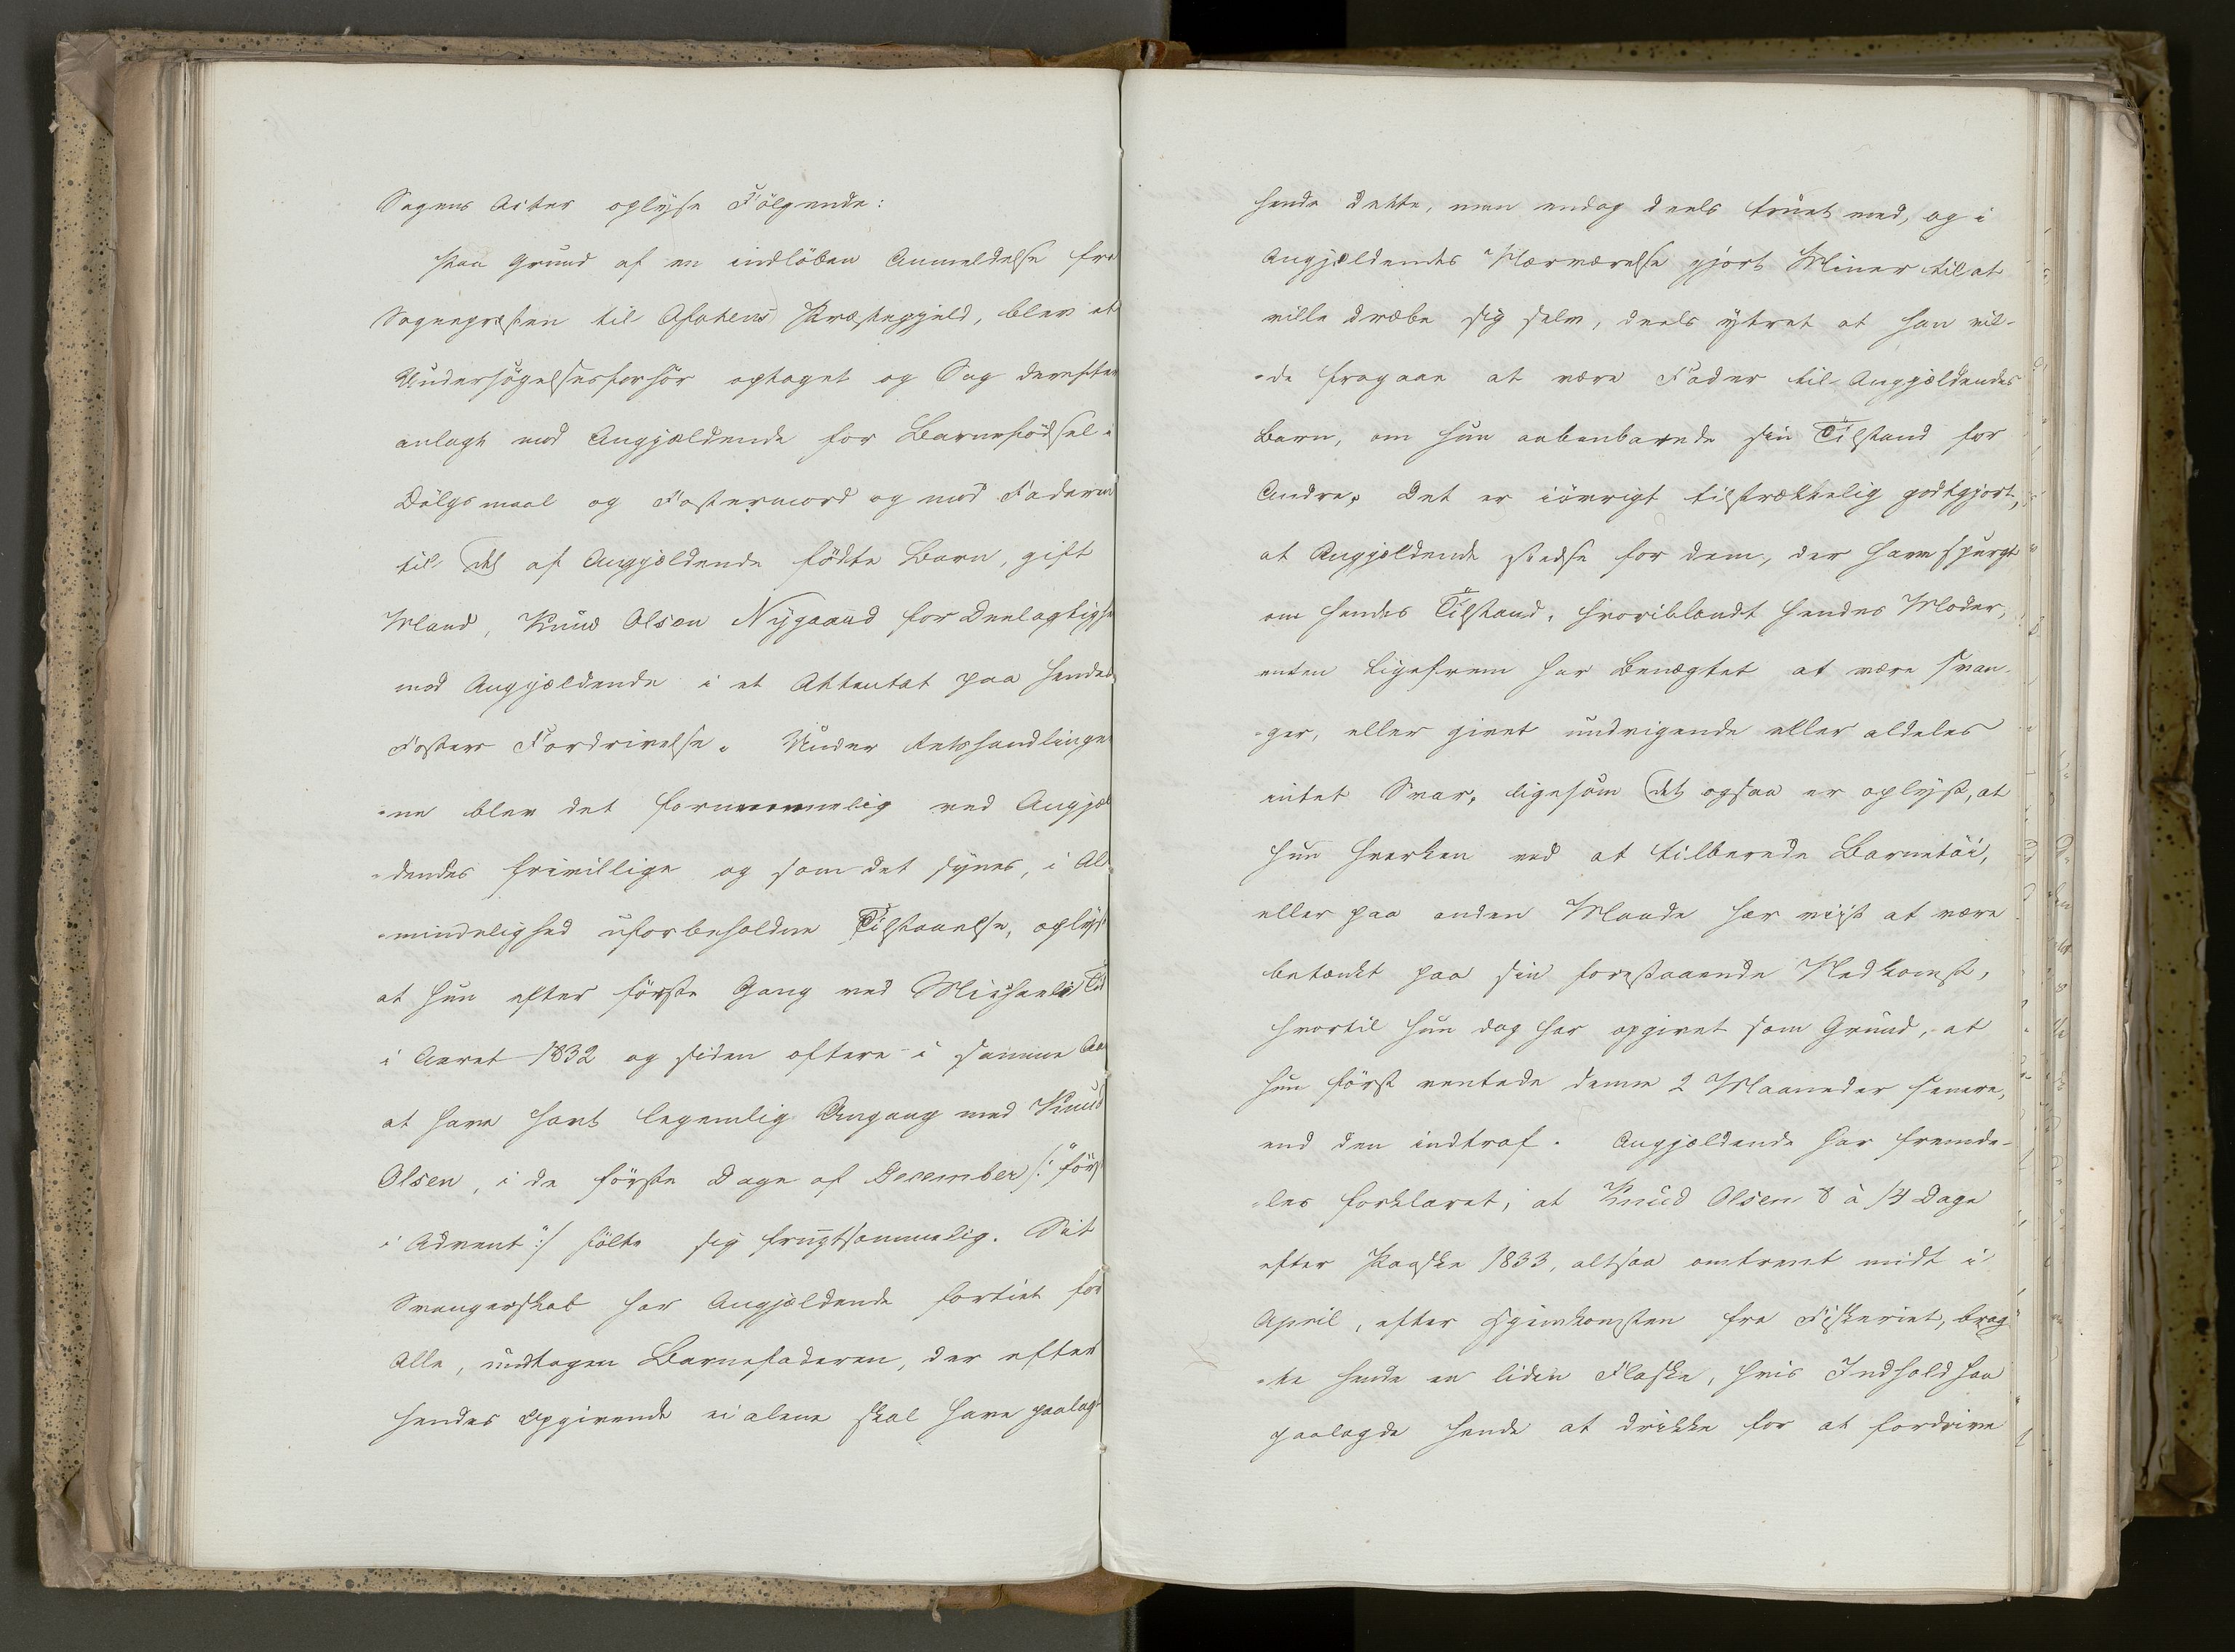 Sagens Acter oplyse Følgende:
Paa Grund af en indløben Anmeldelse fra
Sognepræsten til Afatens Præstegjeld, blev et
Undersøgelsesforhør optaget og Sag derefter
anlagt mod Angjældende for Barnefødsel i
Dølgsmaal og Fostermord og mod Faderen
til det af Angjældende fødte Barn, gift
Mand, Knud Olsen Nygaard for Deelagtighe
med Angjældende i et Attentat paa hendes
Fosters Fordrivelse. Under Retshandlinger
-ne blev det fornemmelig ved Angjæl
-dendes frivillige og som det synes, i Al
-mindelighed uforbeholdne Tilstaaelse, oplyst
at hun efter første Gang ved Michaeli Tid
i Aaret 1832 og siden oftere i samme Aar
at have havt legemlig Omgang med Knud
Olsen, i de første Dage af December /: "først
i Advent" :/ følte sig frugtsommelig. Sit
Svangerskab har Angjældende fortiet for
Alle, undtagen Barnefaderen, der efter
hendes Opgivende ei alene skal have paalagt
hende dette, men endog deels truet med, og i
Angjældendes Nærværelse gjort Miner til at
ville dræbe sig selv, deels ytret at han vil-
-de fragaae at være Fader til Angjældendes
Barn, om hun aabenbarede sin Tilstand for
Andre. Det er iøvrigt tilstrækkelig godtgjort,
at Angjældende stedse for dem, der have spurgt
om hendes Tilstand, hvoriblandt hendes Moder,
enten ligefrem har benægtet at være svan-
-ger, eller givet undvigende eller aldeles
intet Svar, ligesom det ogsaa er oplyst, at
hun hverken ved at tilberede Barnetøi,
eller paa anden Maade har viist at være
betænkt paa sin forestaaende Nedkomst,
hvortil hun dog har opgivet som Grund, at
hun først ventede denne 2 Maaneder senere,
end den indtraf. Angjældende har fremde-
-les forklaret, at Knud Olsen 8 à 14 Dage
efter Paaske 1833, altsaa omtrent midt i
April, efter Hjemkomsten fra Fiskeriet, brag
-te hende en liden Flaske, hvis Indhold han
paalagde hende at drikke for at fordrive